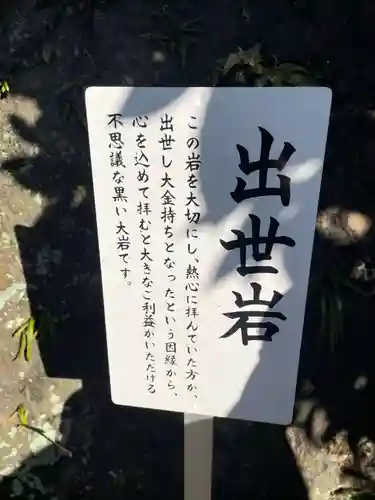 出世岩
この岩を大切にし、熱心に拝んていた方か、
出世し大金持ちとなったという因縁から、
心を込めて拝むと大きなご利益がいただける
不思議な黒い大岩です。